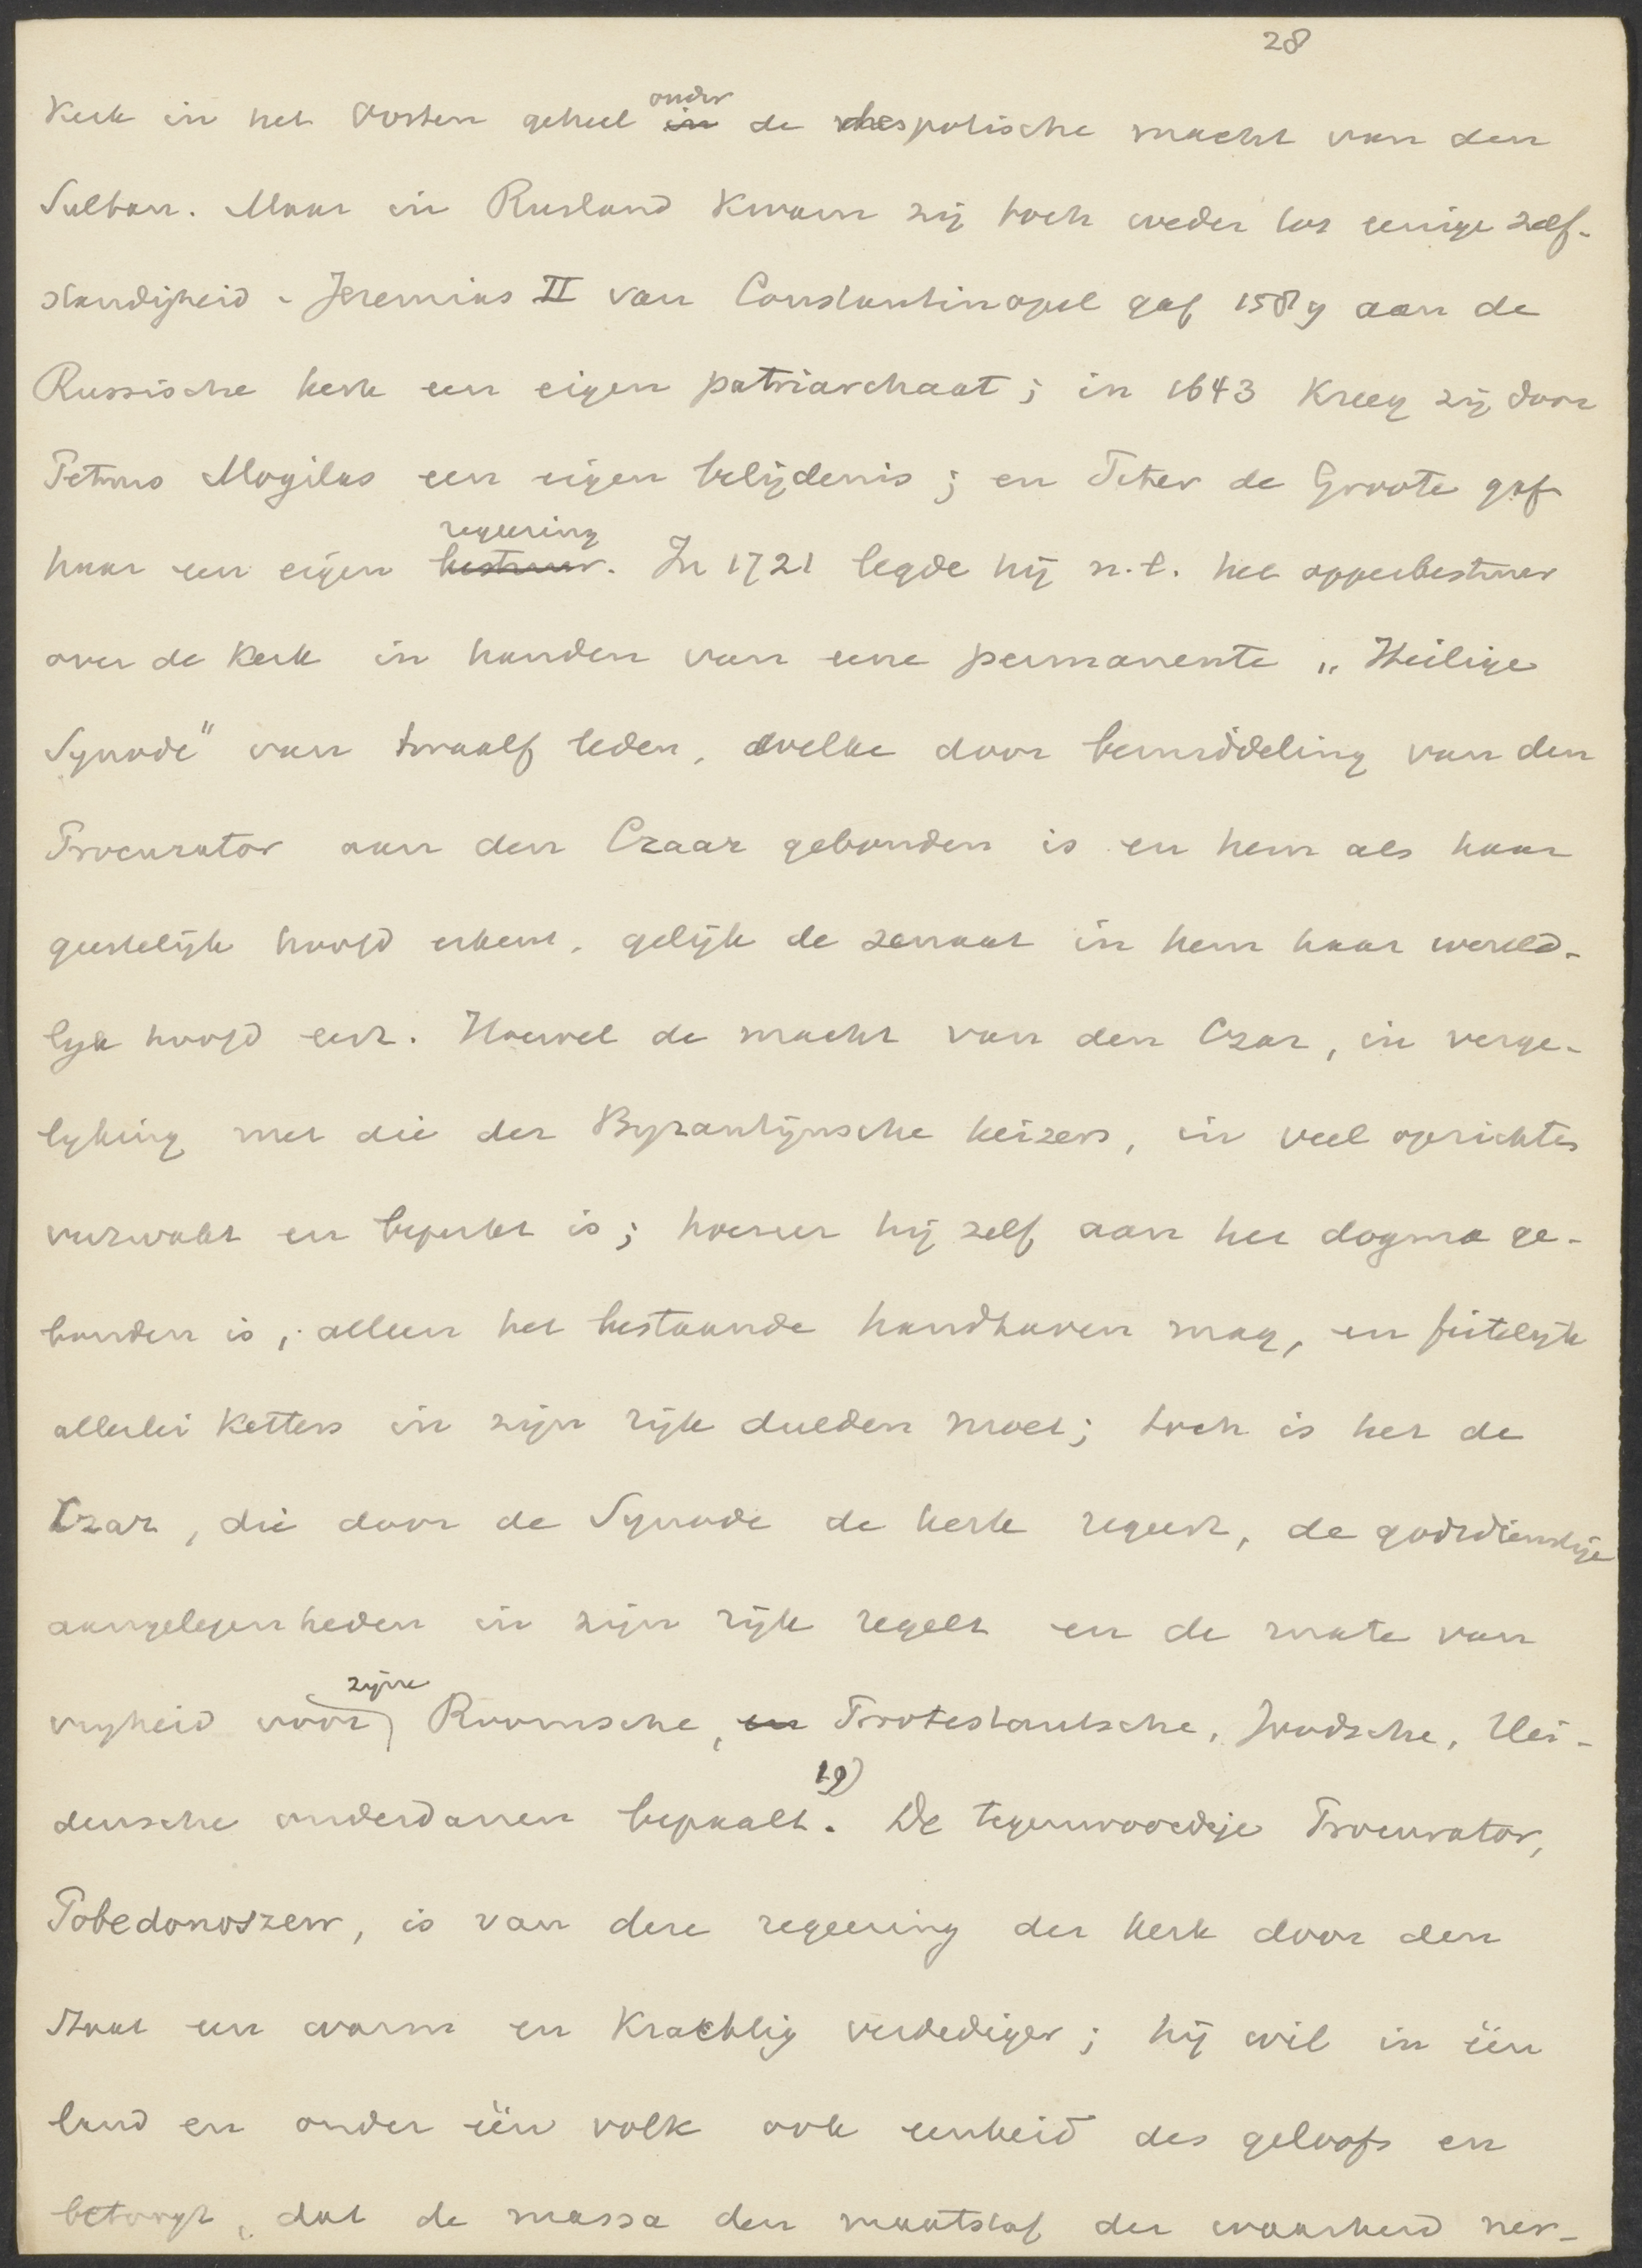 28
Kerk in het Oosten geheel onder de despotische macht van den
Sultan. Maar in Rusland kwam zij toch weder tot eenige zelf-
standigheid. Jeremias II van Constantinopel gaf 1589 aan de
Russische kerk een eigen patriarchaat; in 1643 kreeg zij door
Petrus Mogilas een eigen belijdenis; en Peter de Groote gaf
haar een eigen regeering. In 1721 legde hij n.l. het opperbestuur
over de Kerk in handen van eene permanente „Heilige
Synode" van twaalf leden, welke door bemiddeling van den
Procurator aan den Czaar gebonden is en hem als haar
geestelijk hoofd erkent, gelijk de senaat in hem haar wereld-
lijk hoofd eert. Hoewel de macht van den Czar, in verge-
lijking met die der Byzantijnsche keizers, in veel opzichten
verzwakt en beperkt is; hoezeer hij zelf aan het dogma ge-
bonden is, alleen het bestaande handhaven mag, en feitelijk
allerlei ketters in zijn rijk dulden moet; toch is het de
Czar, die door de Synode de kerk regeert, de godsdienstige
aangelegenheden in zijn rijk regelt en de mate van
vrijheid voor zijne Roomsche, Protestantsche, Joodsche, Hei-
densche onderdanen bepaalt. 19) De tegenwoordige Procurator,
Pobedonoszew, is van deze regeering der kerk door den
Staat een warm en krachtig verdediger; hij wil in één
land en onder één volk ook eenheid des geloofs en
betoogt, dat de massa den maatstaf der waarheid ner-